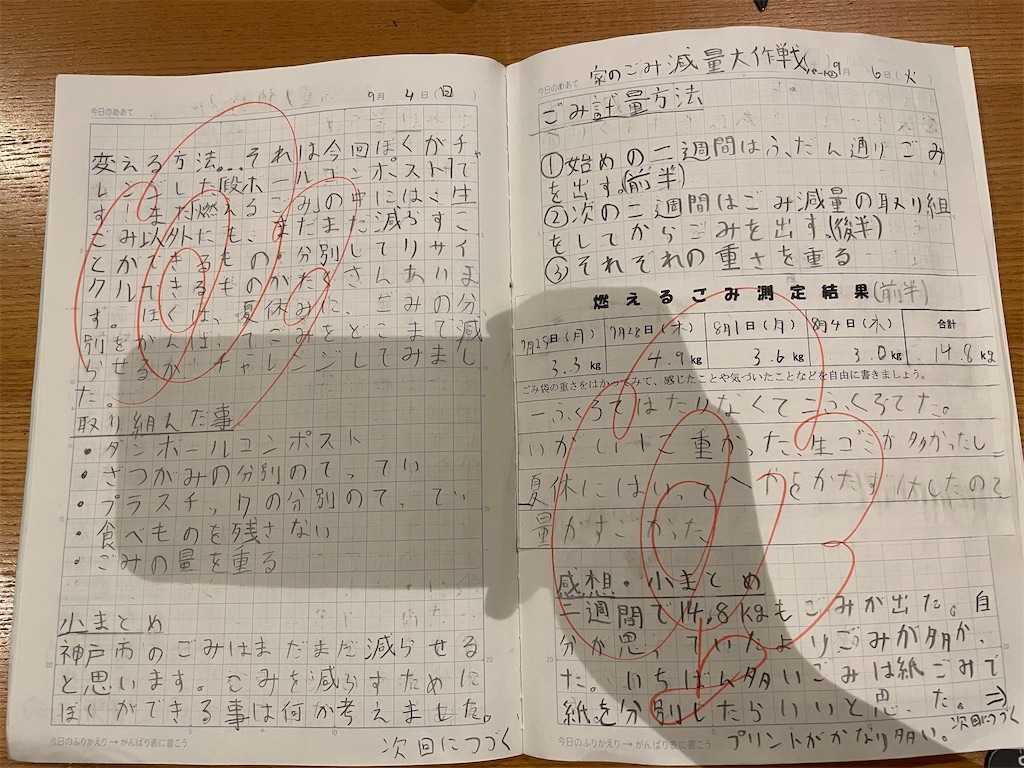 今日のめあて
9月 4日(日)
変える方法…それは今回ぼくがチャ
レンジした段ボールコンポストで
す！また燃えるごみの中には、生
ごみ以外にも、まだまだ減らすこ
とができるもの・分別してリサイ
クルできるものがたくさんありま
す。ぼくは、夏休みに、ごみの分
別をがんばってごみをどこまで減
らせるかチャレンジしてみまし
た。
取り組んだ事
・ダンボールコンポスト
・ざつがみの分別のてってい
・プラスチックの分別のてってい
・食べものを残さない
・ごみの量を重る
小まとめ
神戸市のごみはまだまだ減らせる
と思います。ごみを減らすために
ぼくができる事は何か考えました。
今日のふりかえり→がんばり表に書こう
次回につづく
家のごみ減量大作戦
今日のめあて
9月 6日(火)
ごみ計量方法
①始めの二週間はふだん通りごみ
を出す。(前半)
②次の二週間はごみ減量の取り組
をしてからごみを出す。(後半)
③それぞれの重さを重る
燃えるごみ測定結果(前半)
7月25日(月) 7月28日(木) 8月1日(月) 8月4日(木) 合計
3.3kg 4.9kg 3.6kg 3.0kg 14.8kg
ごみ袋の重さをはかってみて、感じたことや気づいたことなどを自由に書きましょう。
一ふくろではたりなくて二ふくろでた。
いがいとすごく重かった。生ゴミが多かったし
夏休にはいってへやをかたずけしたので
量がすごかった
感想・小まとめ
二週間で14.8kgもごみが出た。自
分が思っていたよりごみが多かっ
た。いちばん多いごみは紙ごみで
紙を分別したらいいと思った。⇒
次回につづく
プリントがかなり多い。
今日のふりかえり→がんばり表に書こう